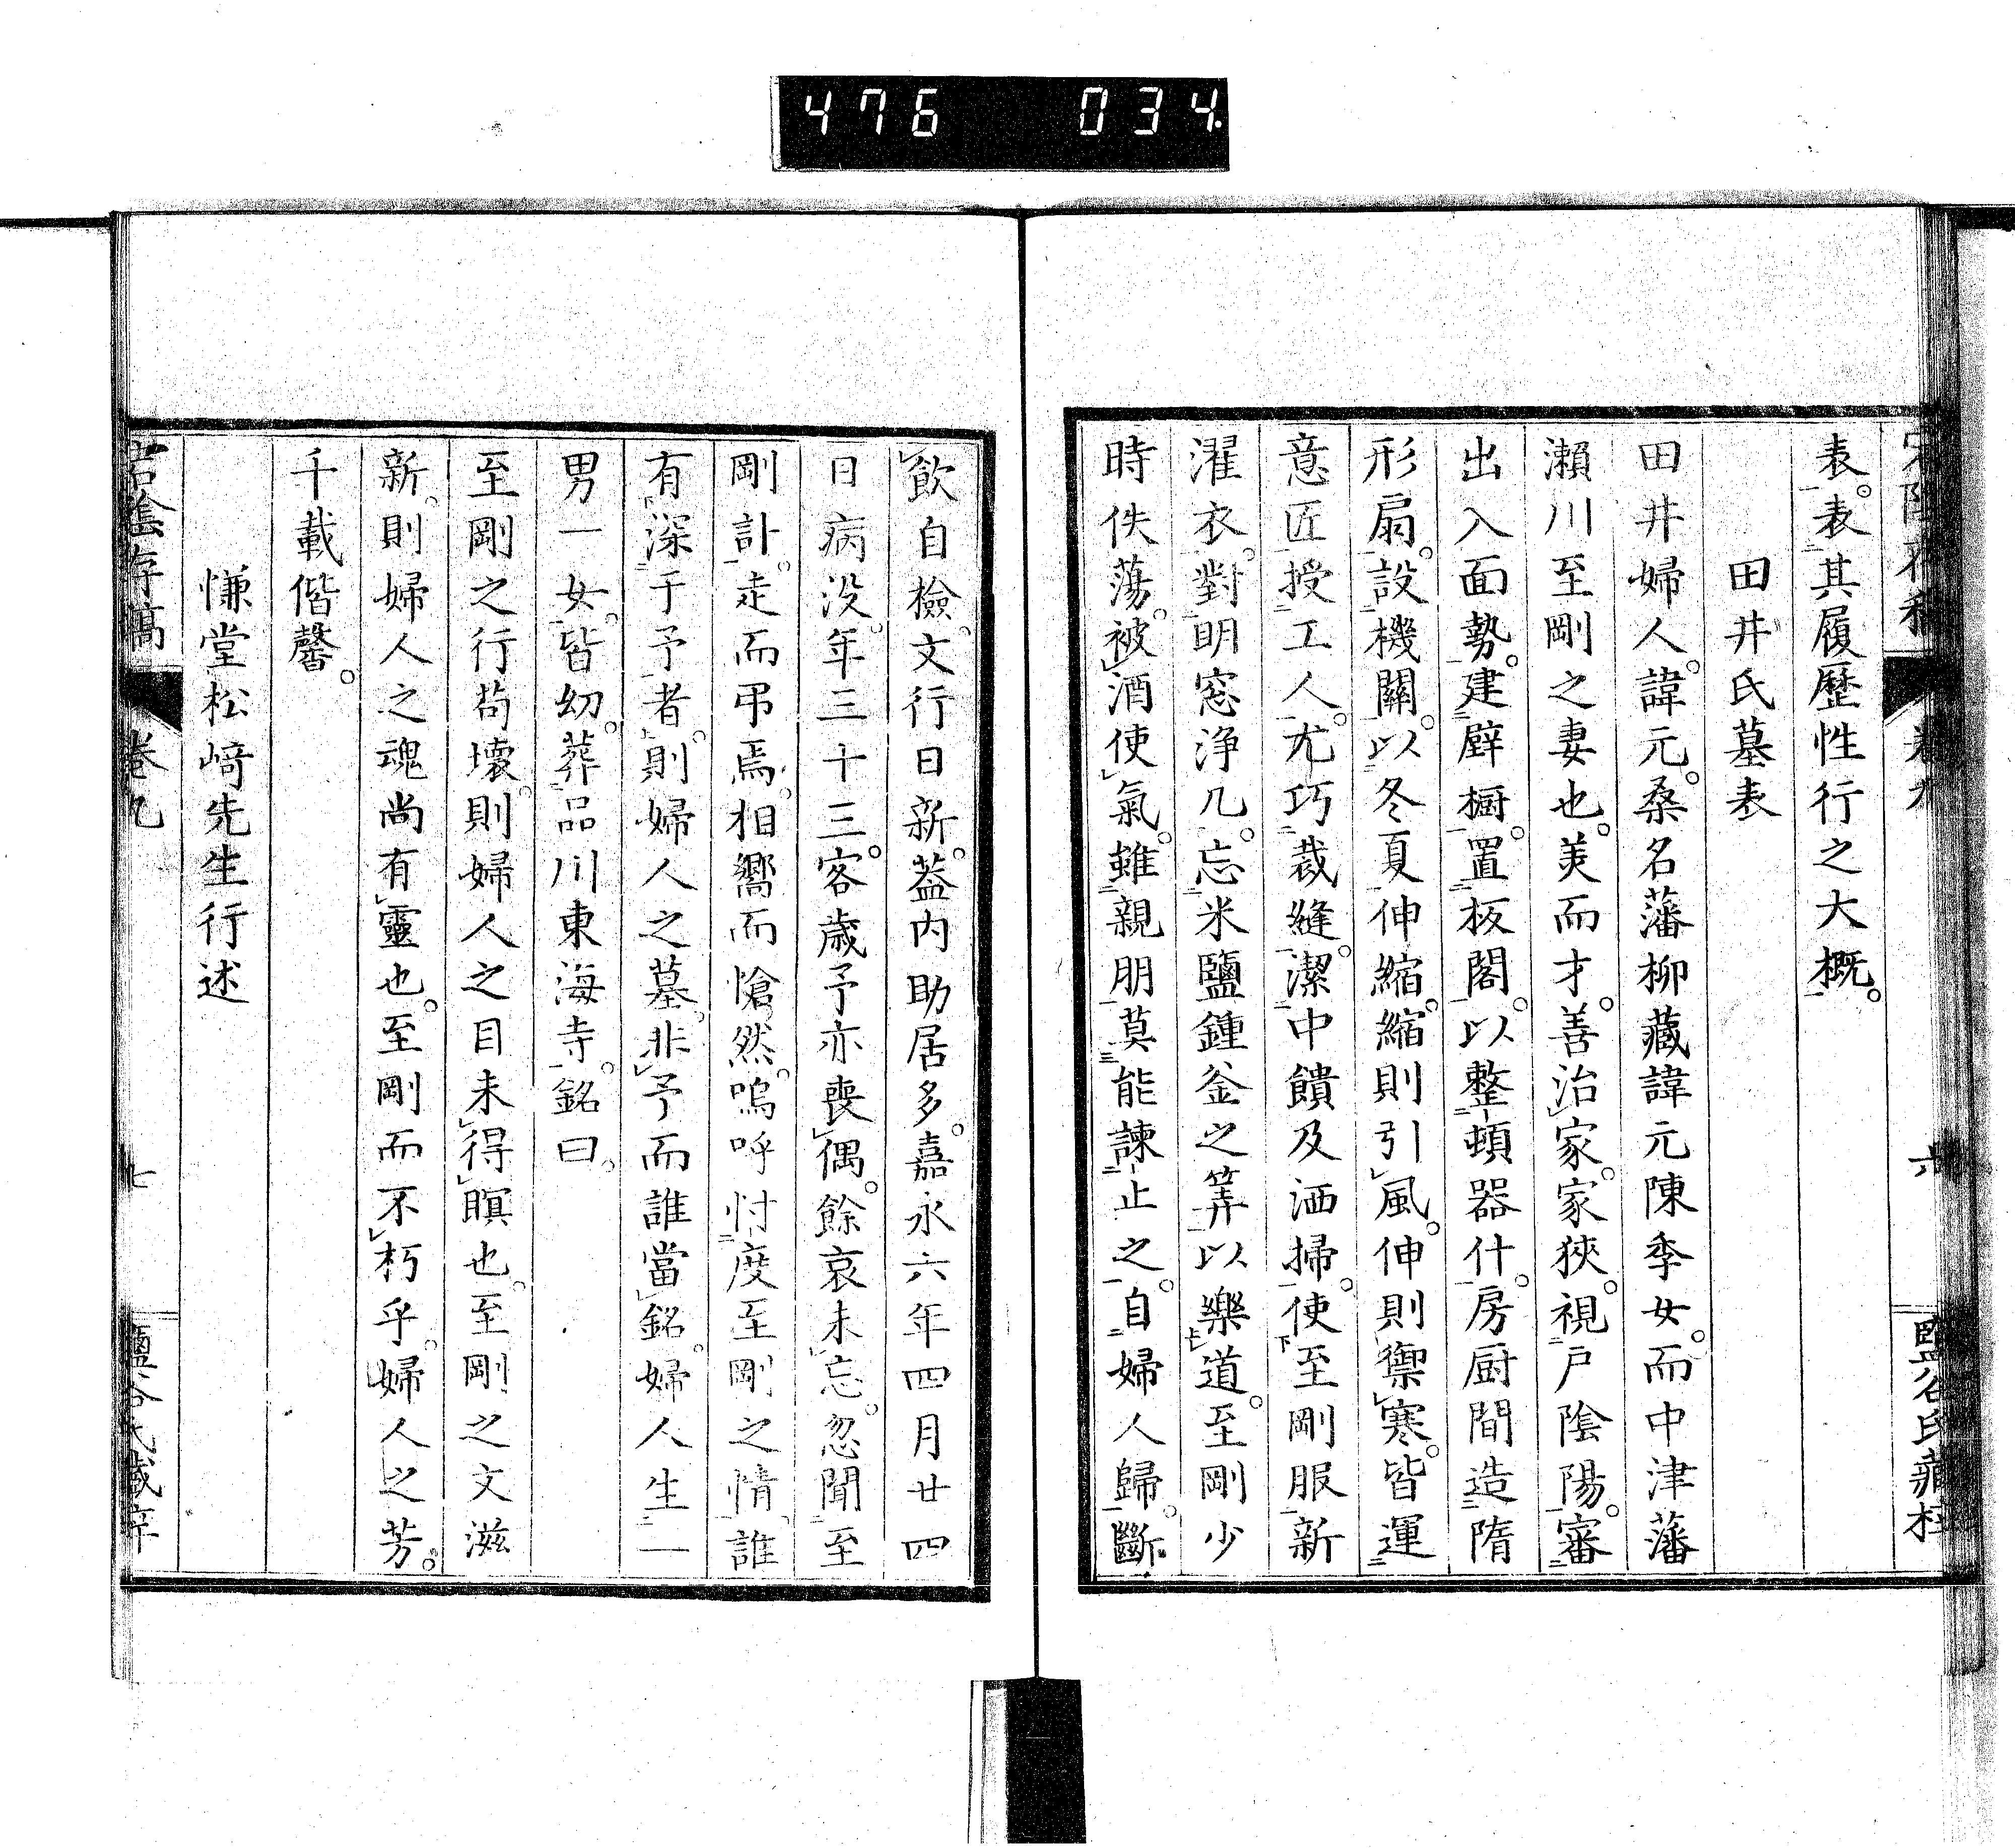 476 034
表。表其履歷性行之大概。
田井氏墓表
田井婦人。諱元。桑名藩柳藏諱元陳季女。而中津藩
瀨川至剛之妻也。美而才。善治家。家狹。視戶陰陽。審
出入面勢。建壁櫥。置板閣。以整頓器什。房廚間造隋
形扇。設機關。以冬夏伸縮。縮則引風。伸則禦寒。皆運
意匠授工人。尤巧裁縫。潔中饋及洒掃。使至剛服新
濯衣。對明窓浄几。忘米鹽鍾釜之筭以樂道。至剛少
時佚蕩。被酒使氣。雖親朋莫能諫止之。自婦人歸。斷
飲自檢。文行日新。葢內助居多。嘉永六年四月廿四
日病沒。年三十三。客歲予亦喪偶。餘哀未忘。忽聞至
剛訃。走而弔焉。相嚮而愴然。嗚呼忖度至剛之情。誰
有深于予者。則婦人之墓。非予而誰當銘。婦人生一
男一女。皆幼。葬品川東海寺。銘曰。
至剛之行苟壞。則婦人之目未得瞑也。至剛之文滋
新。則婦人之魂尚有靈也。至剛而不朽乎。婦人之芳。
千載偕馨。
慊堂松﨑先生行述
岩陰存稿 卷九 七 鹽谷氏藏
卷九 六 鹽谷氏藏